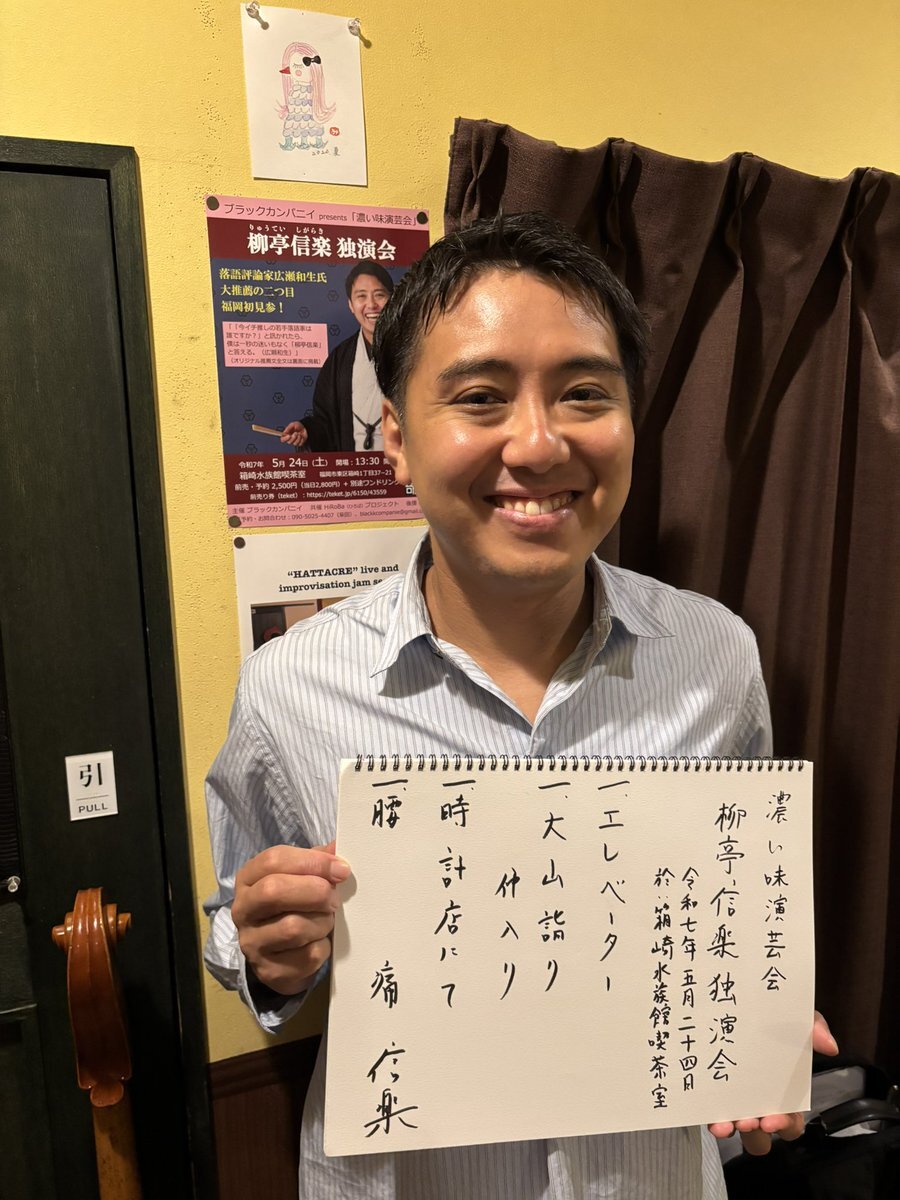 2020 夏
ブラックカンパニイ presents「濃い味演芸会」
りゅうてい しがらき
柳亭信楽 独演会
落語評論家広瀬和生氏
大推薦の二つ目
福岡初見参！
「「今イチ推しの若手落語家は
誰ですか？」と訊かれたら、
僕は一秒の迷いもなく「柳亭信楽」
と答える。（広瀬和生）」
（オリジナル推薦文全文は裏面に掲載）
令和7年 5月24日（土） 開場：13:30
箱崎水族館喫茶室 福岡市東区箱崎1丁目37−21
前売・予約 2,500円（当日2,800円）＋別途ワンドリンク
前売り券（teket）：https://teket.jp/6150/43559
主催 ブラックカンパニイ 共催 HiRoBa プロジェクト 後援
予約・お問合わせ：090-5025-4407（柴田）、blackkcompanie@gmail.
“HATTACRE” live and
improvisation jam se
引
PULL
濃い味演芸会
柳亭信楽独演会
令和七年五月二十四日
於：箱崎水族館喫茶室
一、エレベーター
一、大山詣り
仲入り
一、時計店にて
一、腰痛 信楽